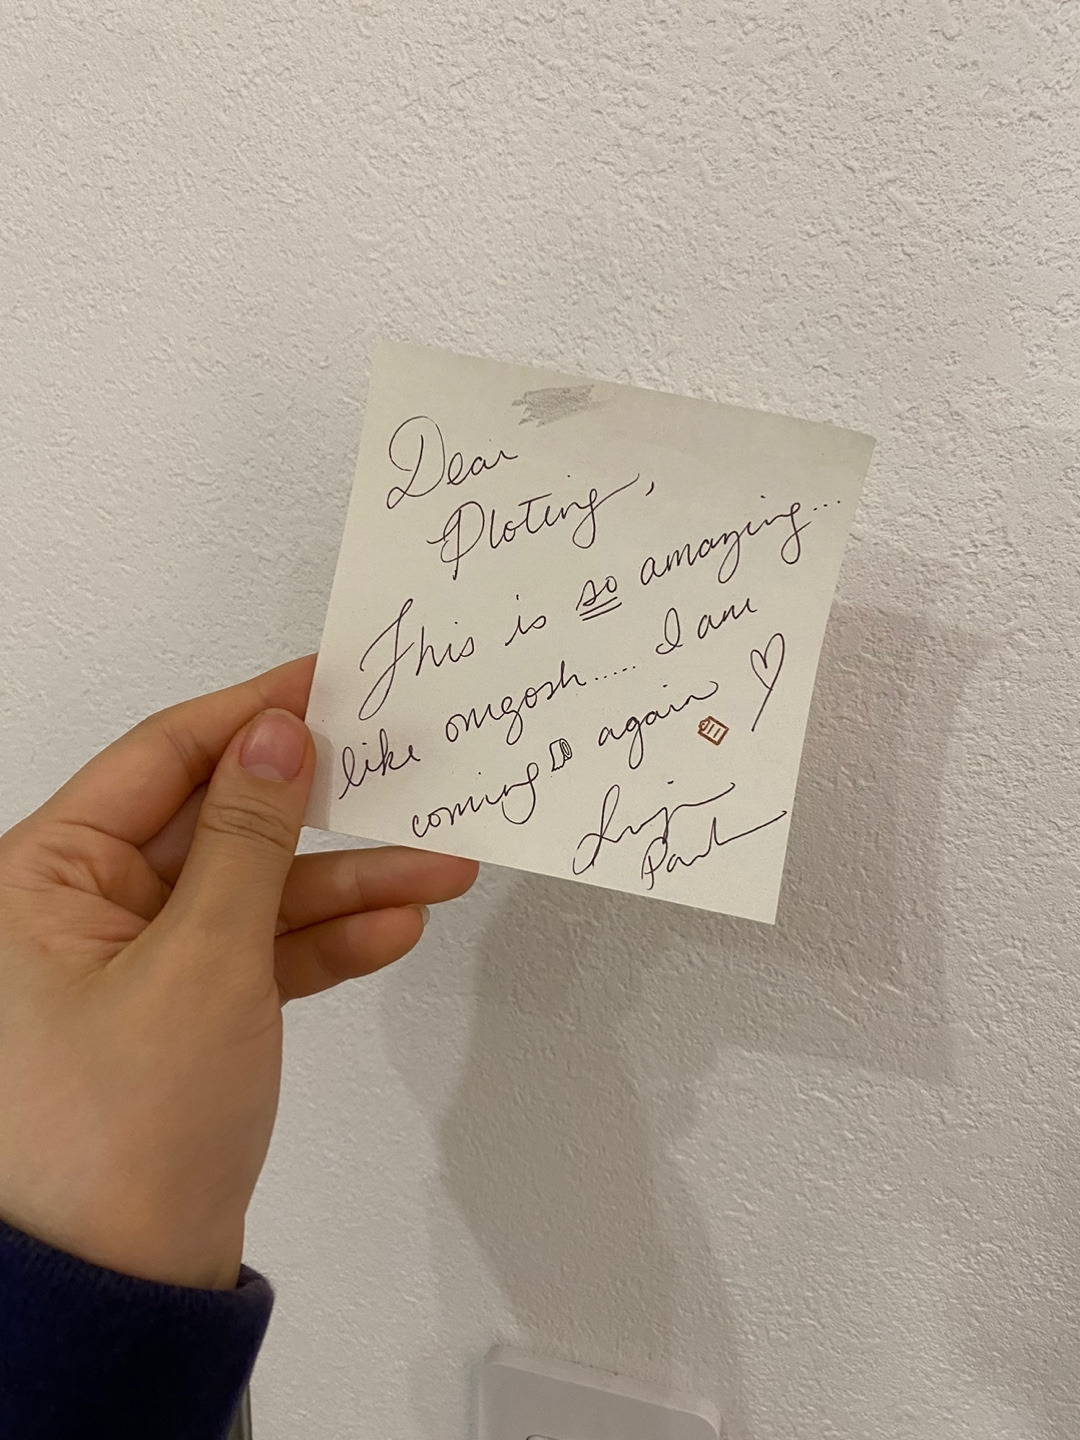 Dear
Ploting,
This is so amazing...
like omgosh..... I am
coming again ♡
Park